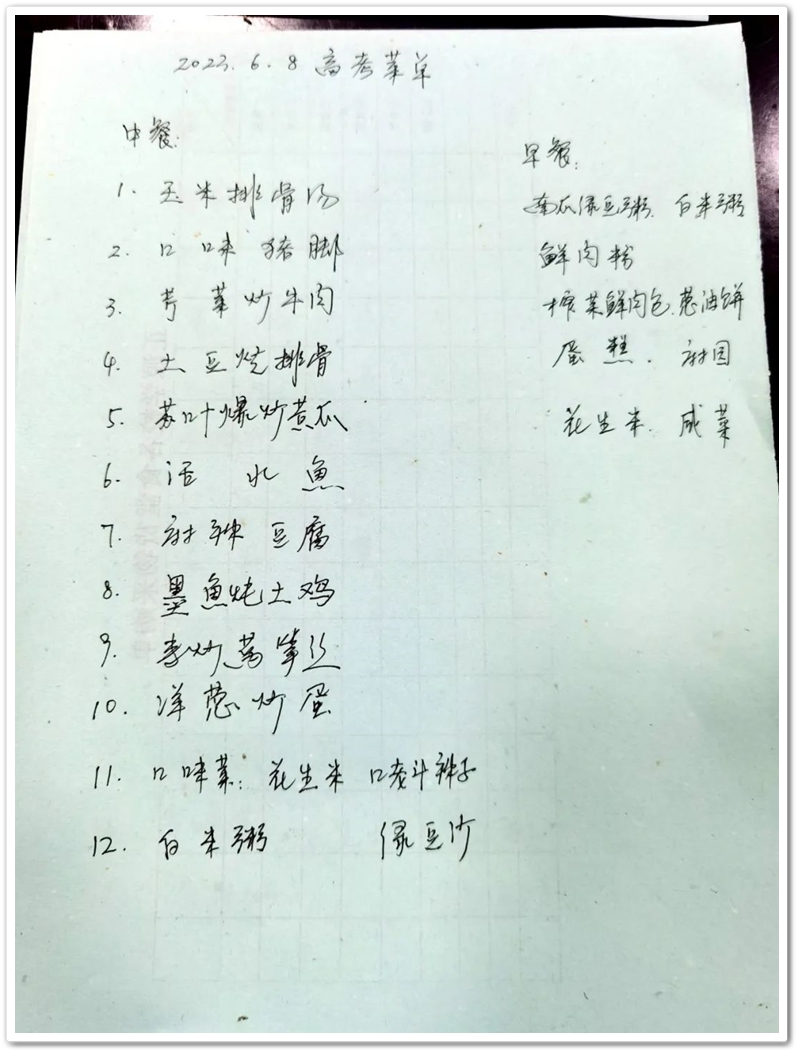 2023.6.8 高考菜单
中餐:
1. 玉米排骨汤
2. 口味猪脚
3. 芹菜炒牛肉
4. 土豆烧排骨
5. 苏叶爆炒黄瓜
6. 活水魚
7. 麻辣豆腐
8. 墨魚炖土鸡
9. 素炒莴笋丝
10. 洋葱炒蛋
11. 口味菜: 花生米 口味辣子
12. 白米粥 绿豆沙
早餐:
南瓜绿豆粥. 白米粥
鲜肉粉
榨菜鲜肉包. 葱油饼
蛋糕. 麻园
花生米. 咸菜